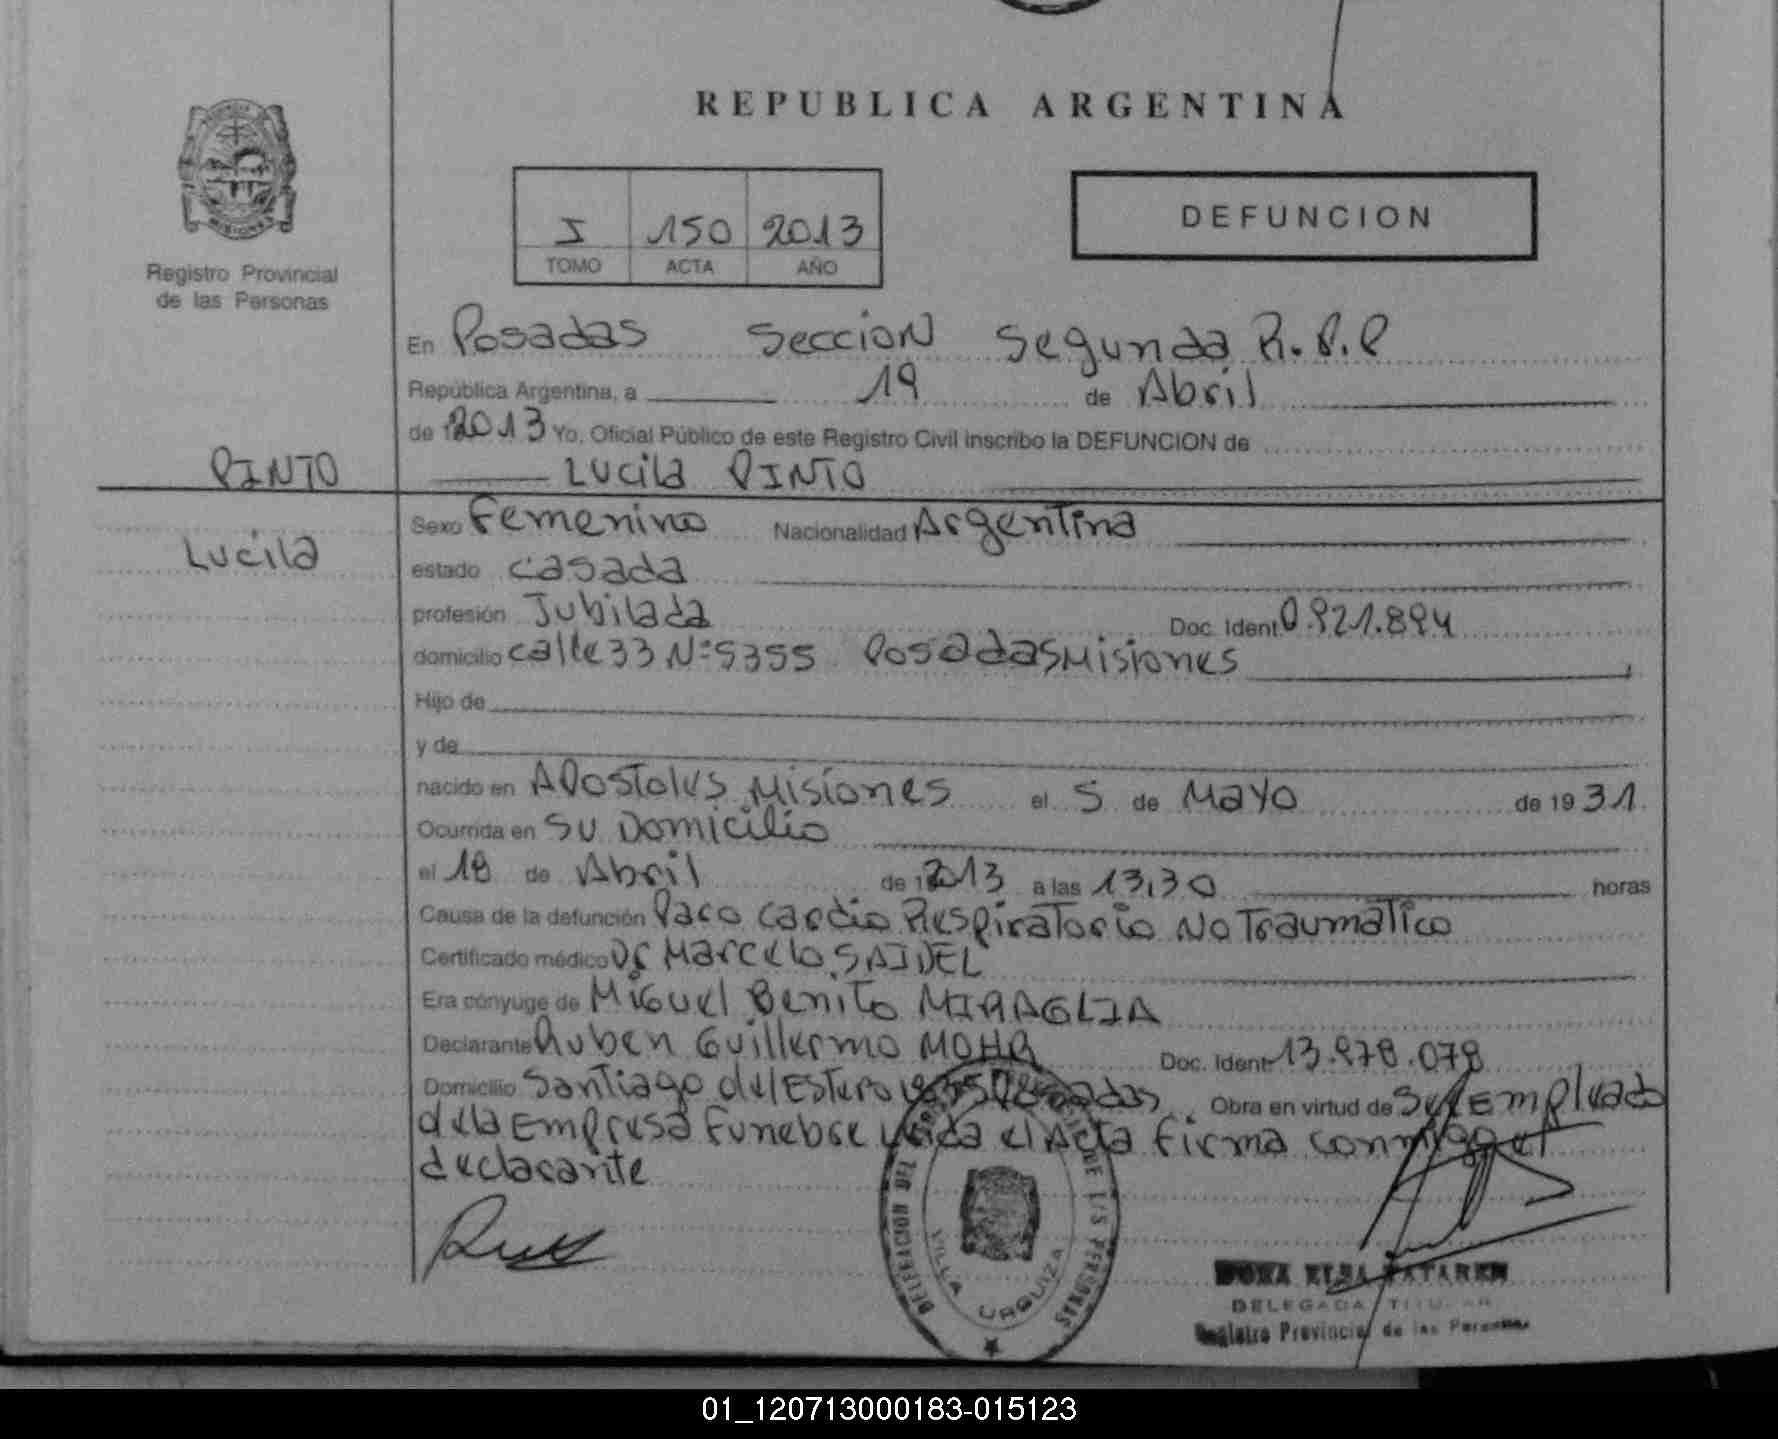 REPUBLICA ARGENTINA
I 150 2013
TOMO ACTA AÑO
DEFUNCION
Registro Provincial
de las Personas
En Posadas Seccion Segunda R.P.P
República Argentina, a 19 de Abril
de 2013 Yo, Oficial Público de este Registro Civil inscribo la DEFUNCION de
PINTO
Lucila PINTO
Lucila
Sexo Femenino Nacionalidad Argentina
estado casada
profesión Jubilada Doc. Ident.
domicilio calle 33 Nº 5355 Posadas Misiones
Hijo de
y de
nacido en Apostoles Misiones el 5 de Mayo de 1931
Ocurrida en su Domicilio
el 18 de Abril de 2013 a las 13,30 horas
Causa de la defunción Paro Cardio Respiratorio No Traumatico
Certificado médico Dr Marcelo SAIDEL
Era cónyuge de Miguel Benito MIRAGLIA
Declarante Ruben Guillermo MOHR Doc. Ident. 13.878.078
Domicilio Santiago del Estero Posadas Obra en virtud de Ser Empleado
de la Empresa Funebre Leida el Acta Firma conmigo el
declarante
VILLA URQUIZA
DELEGADA TITULAR
Registro Provincial de las Personas
01_120713000183-015123